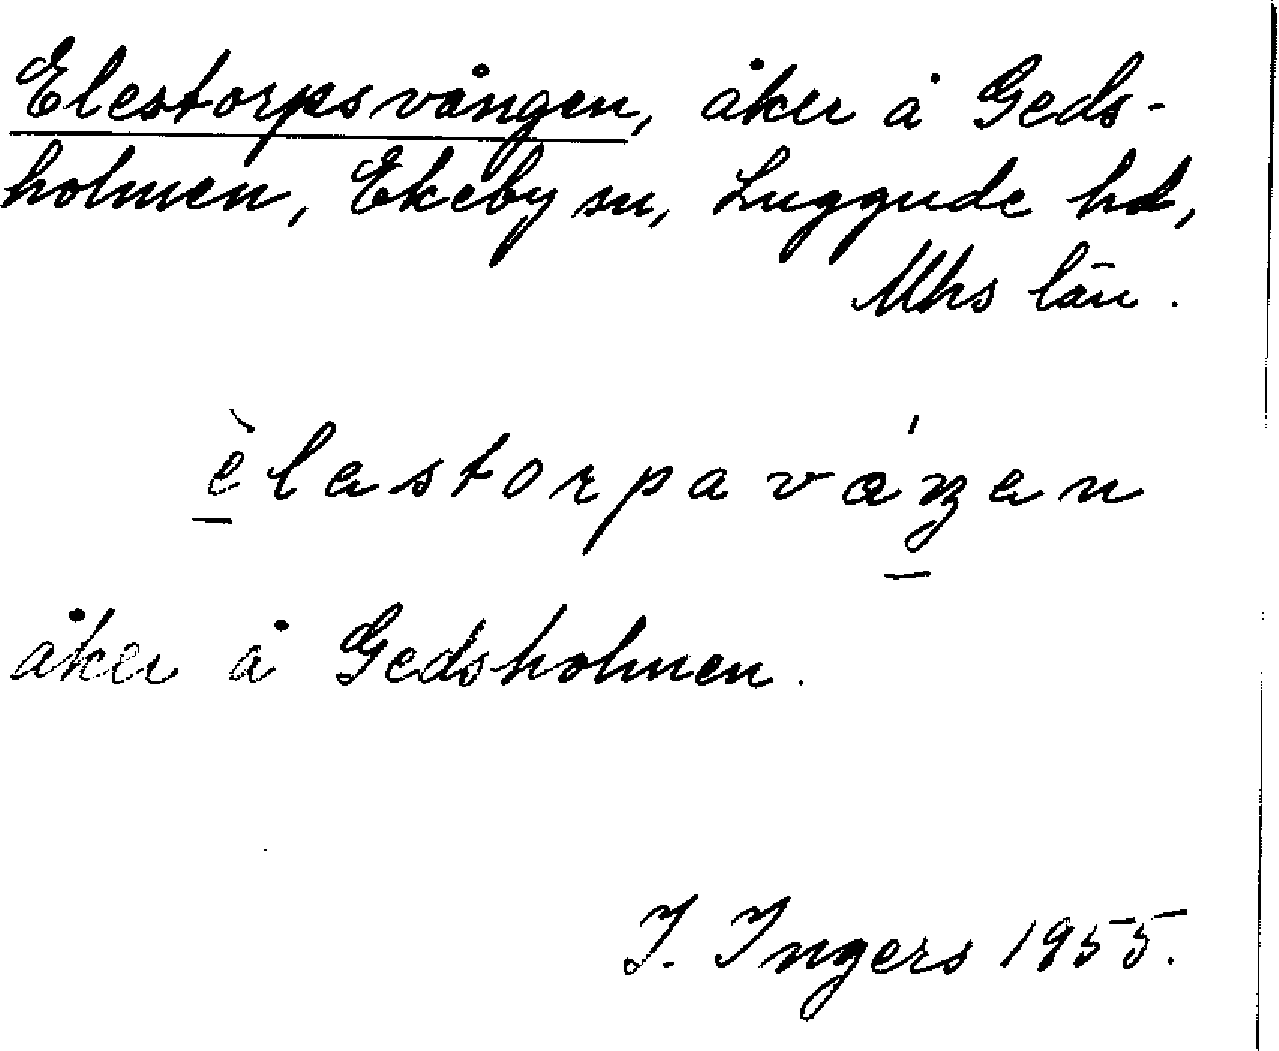 Elestorpsvången, åker å Geds-
holmen, Ekeby sn, Luggude hd,
Mhs län.
èlastorpaváŋan
åker å Gedsholmen.
I. Ingers 1955.